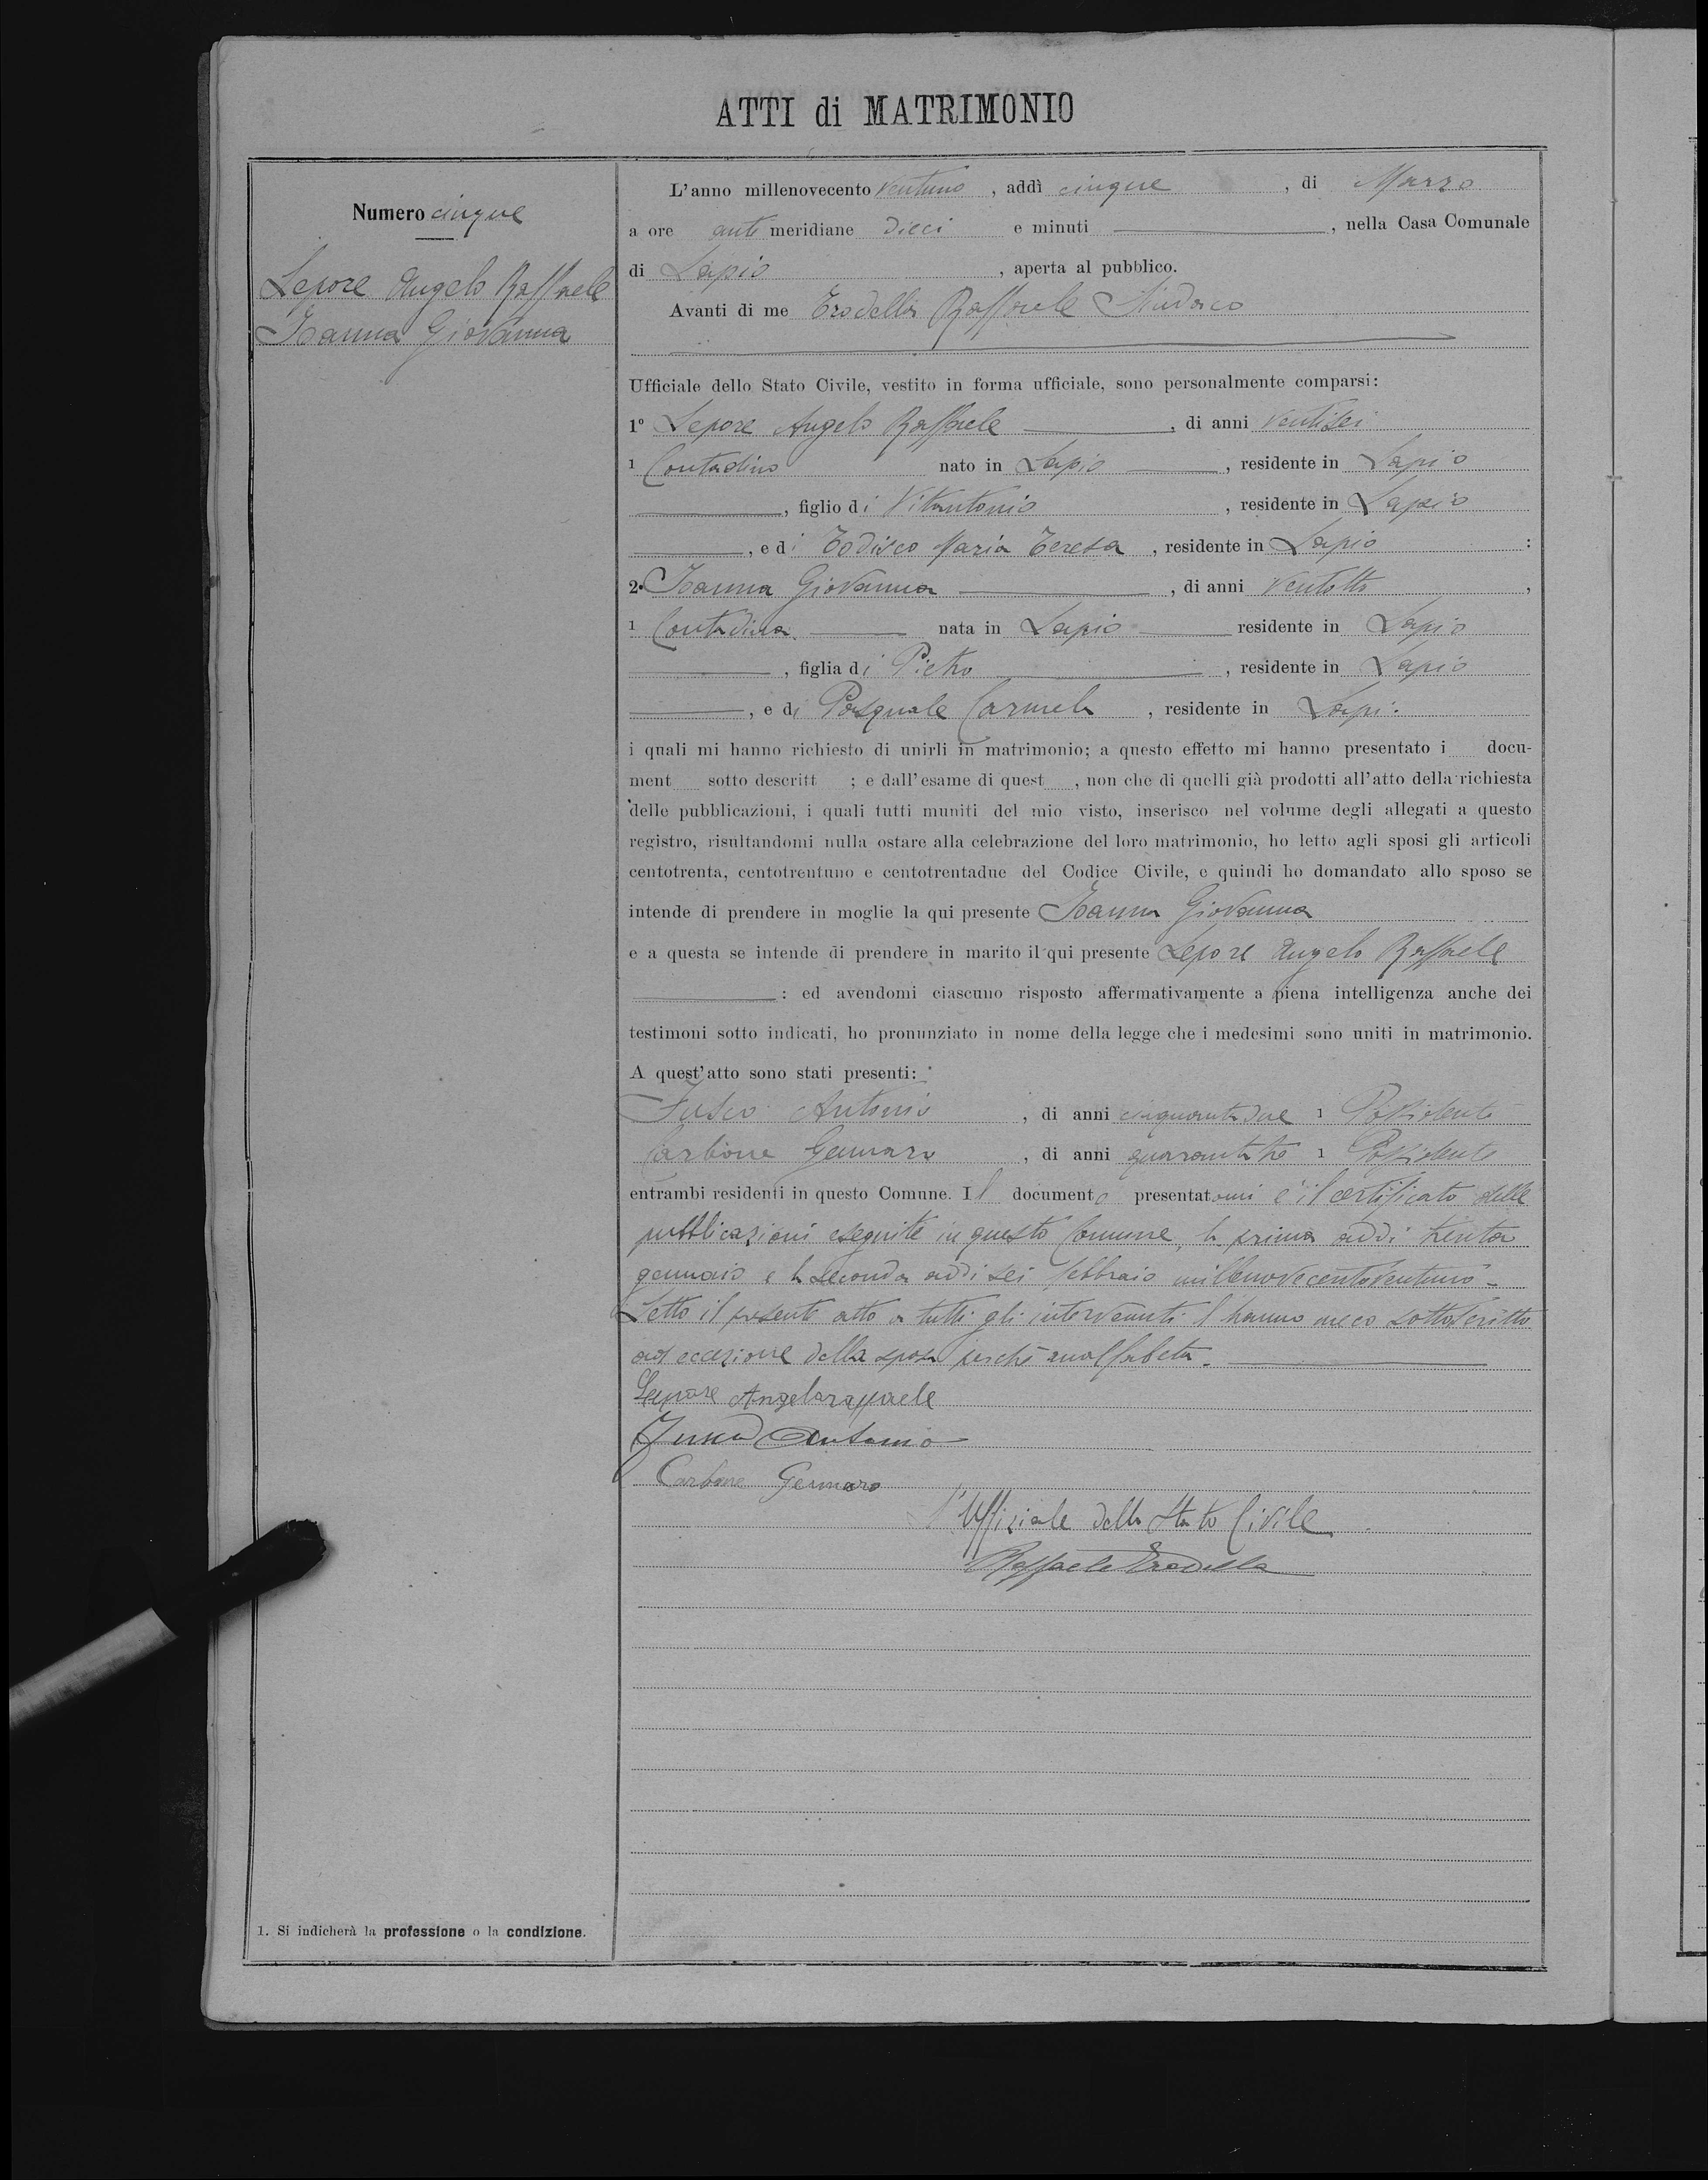 ATTI di MATRIMONIO
Numero cinque
Lepore Angelo Raffaele
Ioanna Giovanna
1. Si indicherà la professione o la condizione.
L'anno millenovecento ventuno, addì cinque, di Marzo
a ore anti meridiane dieci e minuti, nella Casa Comunale
di Lapio, aperta al pubblico.
Avanti di me Trodella Raffaele Sindaco
Ufficiale dello Stato Civile, vestito in forma ufficiale, sono personalmente comparsi:
1º Lepore Angelo Raffaele, di anni ventisei
1 Contadino nato in Lapio, residente in Lapio
, figlio di Vitantonio, residente in Lapio
, e di Todisco Maria Teresa, residente in Lapio:
2º Ioanna Giovanna, di anni ventotto,
1 Contadina nata in Lapio residente in Lapio
, figlia di Pietro, residente in Lapio
, e di Pasquale Carmela, residente in Lapio.
i quali mi hanno richiesto di unirli in matrimonio; a questo effetto mi hanno presentato i docu-
ment sotto descritt ; e dall'esame di quest , non che di quelli già prodotti all'atto della richiesta
delle pubblicazioni, i quali tutti muniti del mio visto, inserisco nel volume degli allegati a questo
registro, risultandomi nulla ostare alla celebrazione del loro matrimonio, ho letto agli sposi gli articoli
centotrenta, centotrentuno e centotrentadue del Codice Civile, e quindi ho domandato allo sposo se
intende di prendere in moglie la qui presente Ioanna Giovanna
e a questa se intende di prendere in marito il qui presente Lepore Angelo Raffaele
: ed avendomi ciascuno risposto affermativamente a piena intelligenza anche dei
testimoni sotto indicati, ho pronunziato in nome della legge che i medesimi sono uniti in matrimonio.
A quest'atto sono stati presenti:
Fusco Antonio, di anni cinquantadue 1 Possidente
Carbone Gennaro, di anni quarantatre 1 Possidente
entrambi residenti in questo Comune. Il documento presentatomi è il certificato delle
pubblicazioni eseguite in questo Comune, la prima addì trenta
gennaio e la seconda addì sei febbraio millenovecentoventuno -
Letto il presente atto a tutti gli intervenuti l'hanno meco sottoscritto
ad eccezione della sposa perchè analfabeta.
Lepore Angeloraffaele
Fusco Antonio
Carbone Gennaro
l'Uffiziale dello Stato Civile
Raffaele Trodella